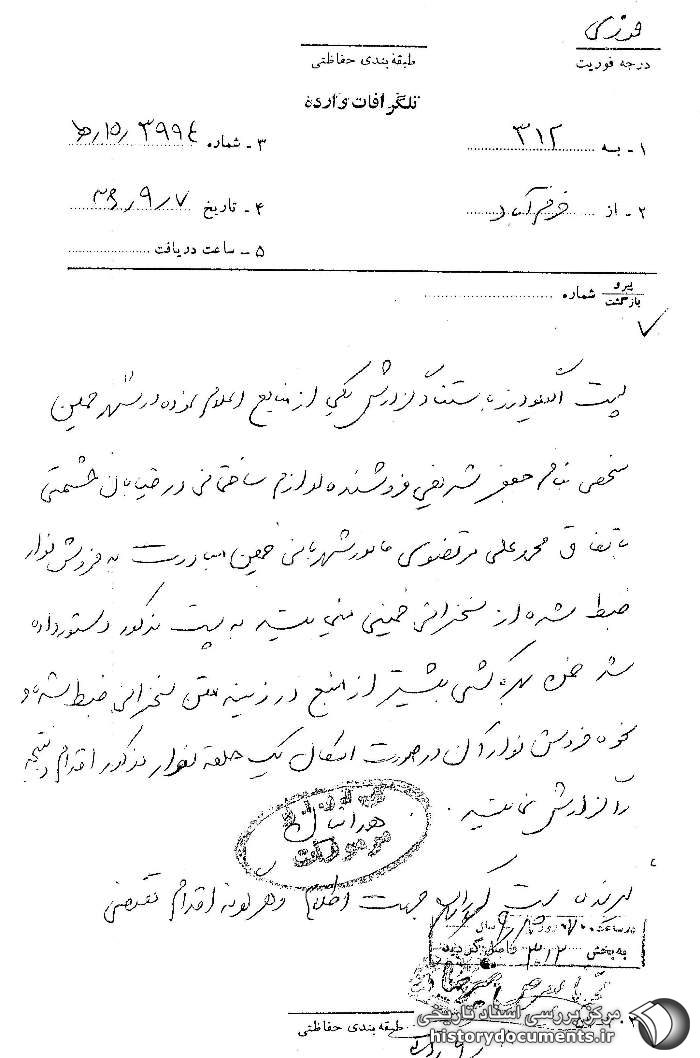 فوری
درجه فوریت
طبقه بندی حفاظتی
تلگرافات وارده
۱ - به ۳۱۲
۳ - شماره ۳۹۹٤ /۱۵/ ھ
۲ - از خرم آباد
۴ - تاریخ ۳۶/۹/۷
۵ - ساعت دریافت
پیرو
بازگشت
شماره
پست الیگودرز باستناد گزارش یکی از منابع اعلام نموده در شهر خمین
شخصی بنام جعفر شریفی فروشنده لوازم ساختمانی در خیابان حشمتی
باتفاق محمدعلی مرتضوی مامور شهربانی خمین مبادرت به فروش نوار
ضبط شده از سخنرانی خمینی مینماید به پست مذکور دستور داده
شد ضمن بهره گیری بیشتر از منبع در زمینه متن سخنرانی ضبط شده و
نحوه فروش نوار آن در صورت امکان یک حلقه نوار مذکور اقدام و نتیجه
را گزارش نمایند .
جهت اطلاع و هرگونه اقدام مقتضی
در ساعت روز سال
به بخش ۳۱۲ واصل گردید
طبقه بندی حفاظتی
مرکز بررسی اسناد تاریخی
historydocuments.ir